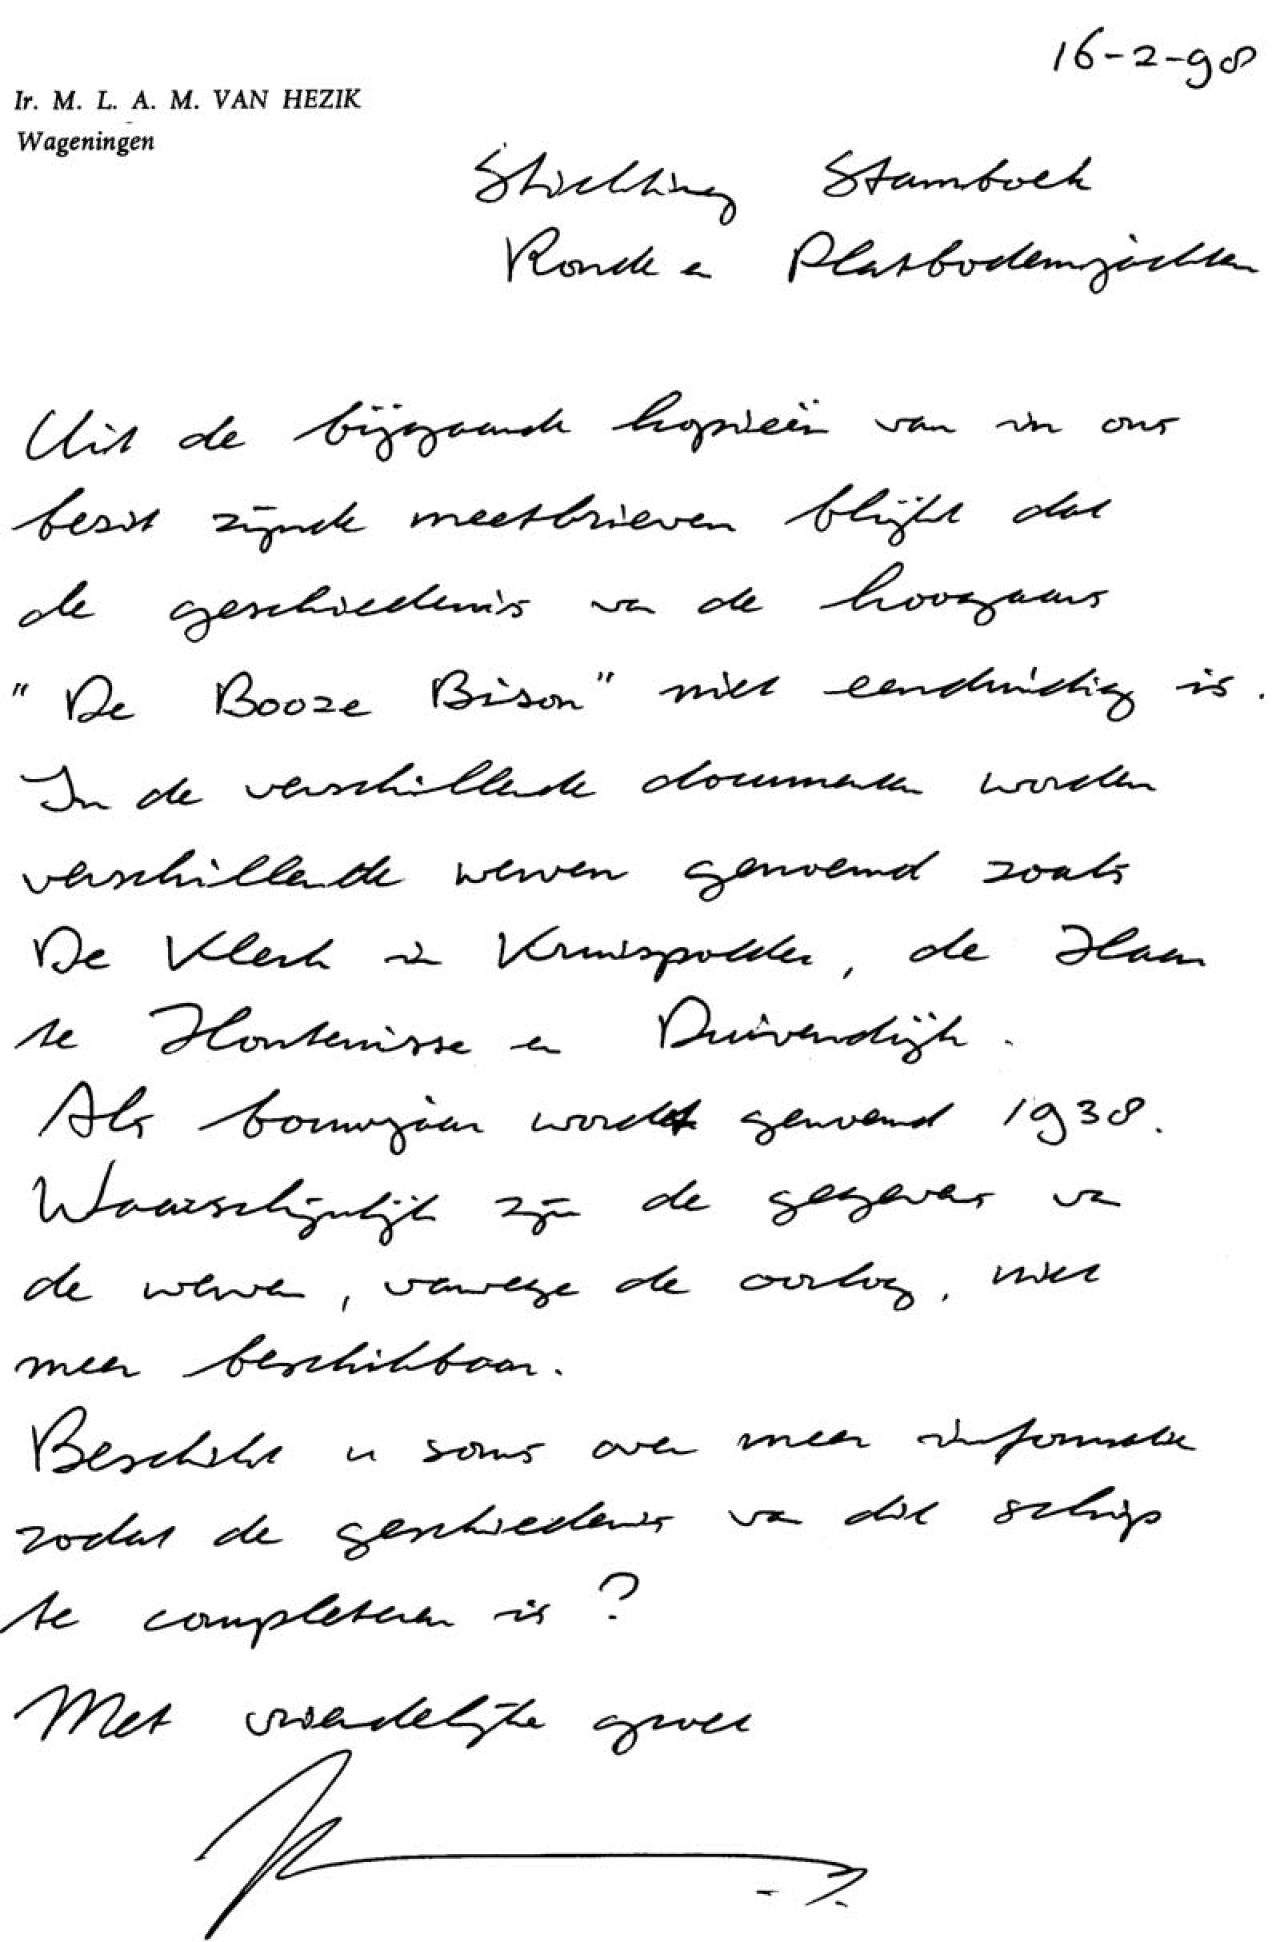 16-2-98
Ir. M. L. A. M. VAN HEZIK
Wageningen
Stichting Stamboek
Ronde en Platbodemjachten
Uit de bijgaande kopieën van in ons
bezit zijnde meetbrieven blijkt dat
de geschiedenis van de hoogaars
"De Booze Bison" niet eenduidig is.
In de verschillende documenten worden
verschillende werven genoemd zoals
De Klerk in Kruispolder, de Haan
te Hontenisse en Duivendijk.
Als bouwjaar wordt genoemd 1938.
Waarschijnlijk zijn de gegevens van
de werven, vanwege de oorlog, niet
meer beschikbaar.
Beschikt u soms over meer informatie
zodat de geschiedenis van dit schip
te completeren is?
Met vriendelijke groet